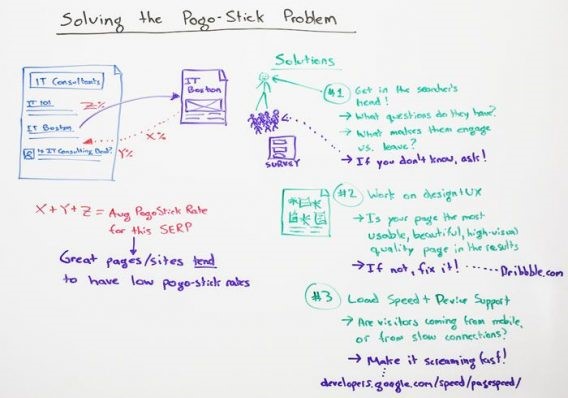 Solving the Pogo-Stick Problem
IT Consultants
IT 101
Z%
IT Boston
X%
Y%
IT
Boston
X + Y + Z = Avg PogoStick Rate
for this SERP
Great pages/sites tend
to have low pogo-stick rates
Solutions
SURVEY
#1 Get in the searcher's
head!
→ What questions do they have?
→ What makes them engage
vs. leave?
→ If you don't know, ask!
#2 Work on design + UX
→ Is your page the most
usable, beautiful, high-visual
quality page in the results
→ If not, fix it! ······ Dribbble.com
#3 Load Speed + Device Support
→ Are visitors coming from mobile,
or from slow connections?
→ Make it screaming fast!
developers.google.com/speed/pagespeed/